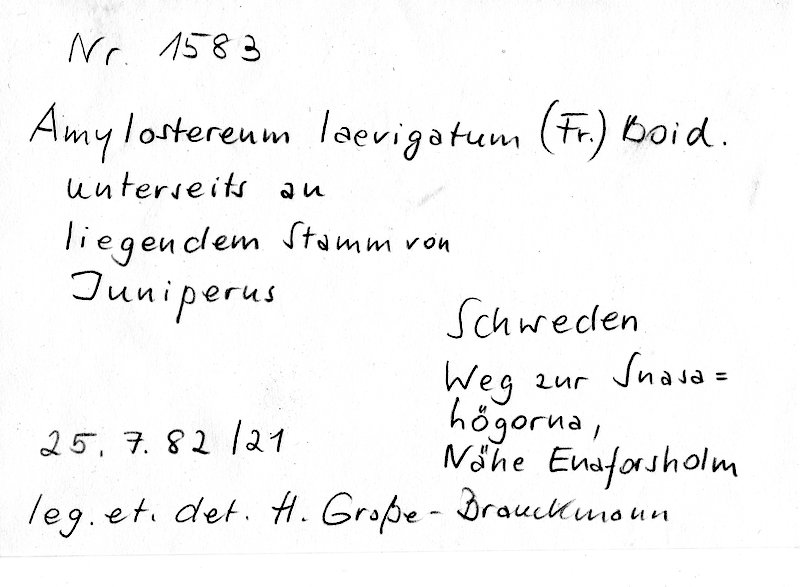 Nr. 1583
Amylostereum laevigatum (Fr.) Boid.
unterseits an
liegendem Stamm von
Juniperus
Schweden
Weg zur Snasa=
högorna,
Nähe Enaforsholm
25. 7. 82 /21
leg. et. det. H. Große-Brauckmann